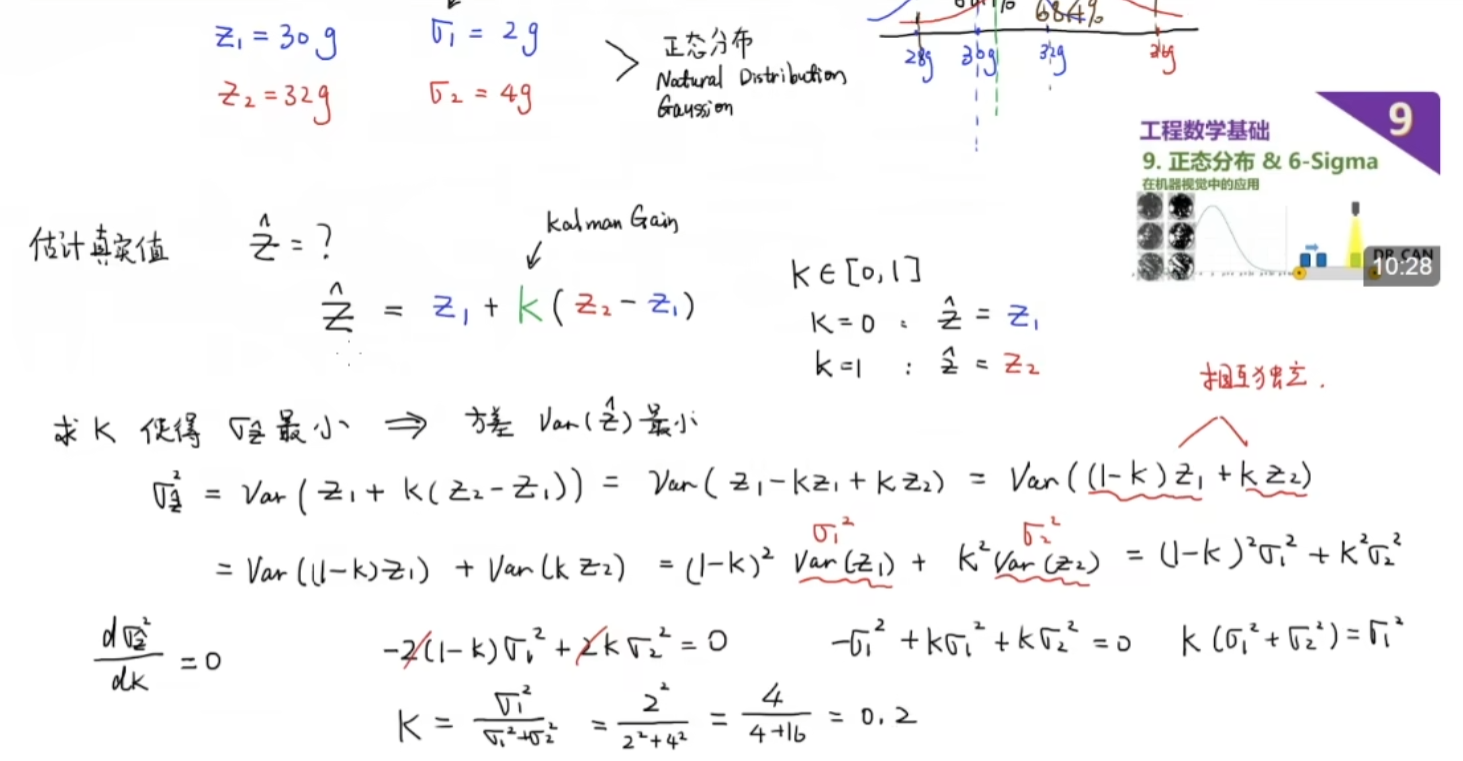 z₁ = 30g σ₁ = 2g
z₂ = 32g σ₂ = 4g
正态分布
Natural Distribution
Gaussion
68.4%
28g 30g 32g 36g
工程数学基础
9
9. 正态分布 & 6-Sigma
在机器视觉中的应用
DR_CAN
10:28
估计真实值 ẑ = ?
Kalman Gain
ẑ = z₁ + k(z₂ - z₁)
k∈[0,1]
k=0 : ẑ = z₁
k=1 : ẑ = z₂
相互独立.
求 k 使得 σẑ 最小 ⇒ 方差 Var(ẑ) 最小
σẑ² = Var(z₁ + k(z₂-z₁)) = Var(z₁-kz₁+kz₂) = Var((1-k)z₁ + kz₂)
σ₁² σ₂²
= Var((1-k)z₁) + Var(kz₂) = (1-k)² Var(z₁) + k² Var(z₂) = (1-k)²σ₁² + k²σ₂²
dσẑ²/dk = 0 -2(1-k)σ₁² + 2kσ₂² = 0 -σ₁² + kσ₁² + kσ₂² = 0 k(σ₁²+σ₂²) = σ₁²
k = σ₁²/(σ₁²+σ₂²) = 2²/(2²+4²) = 4/(4+16) = 0.2